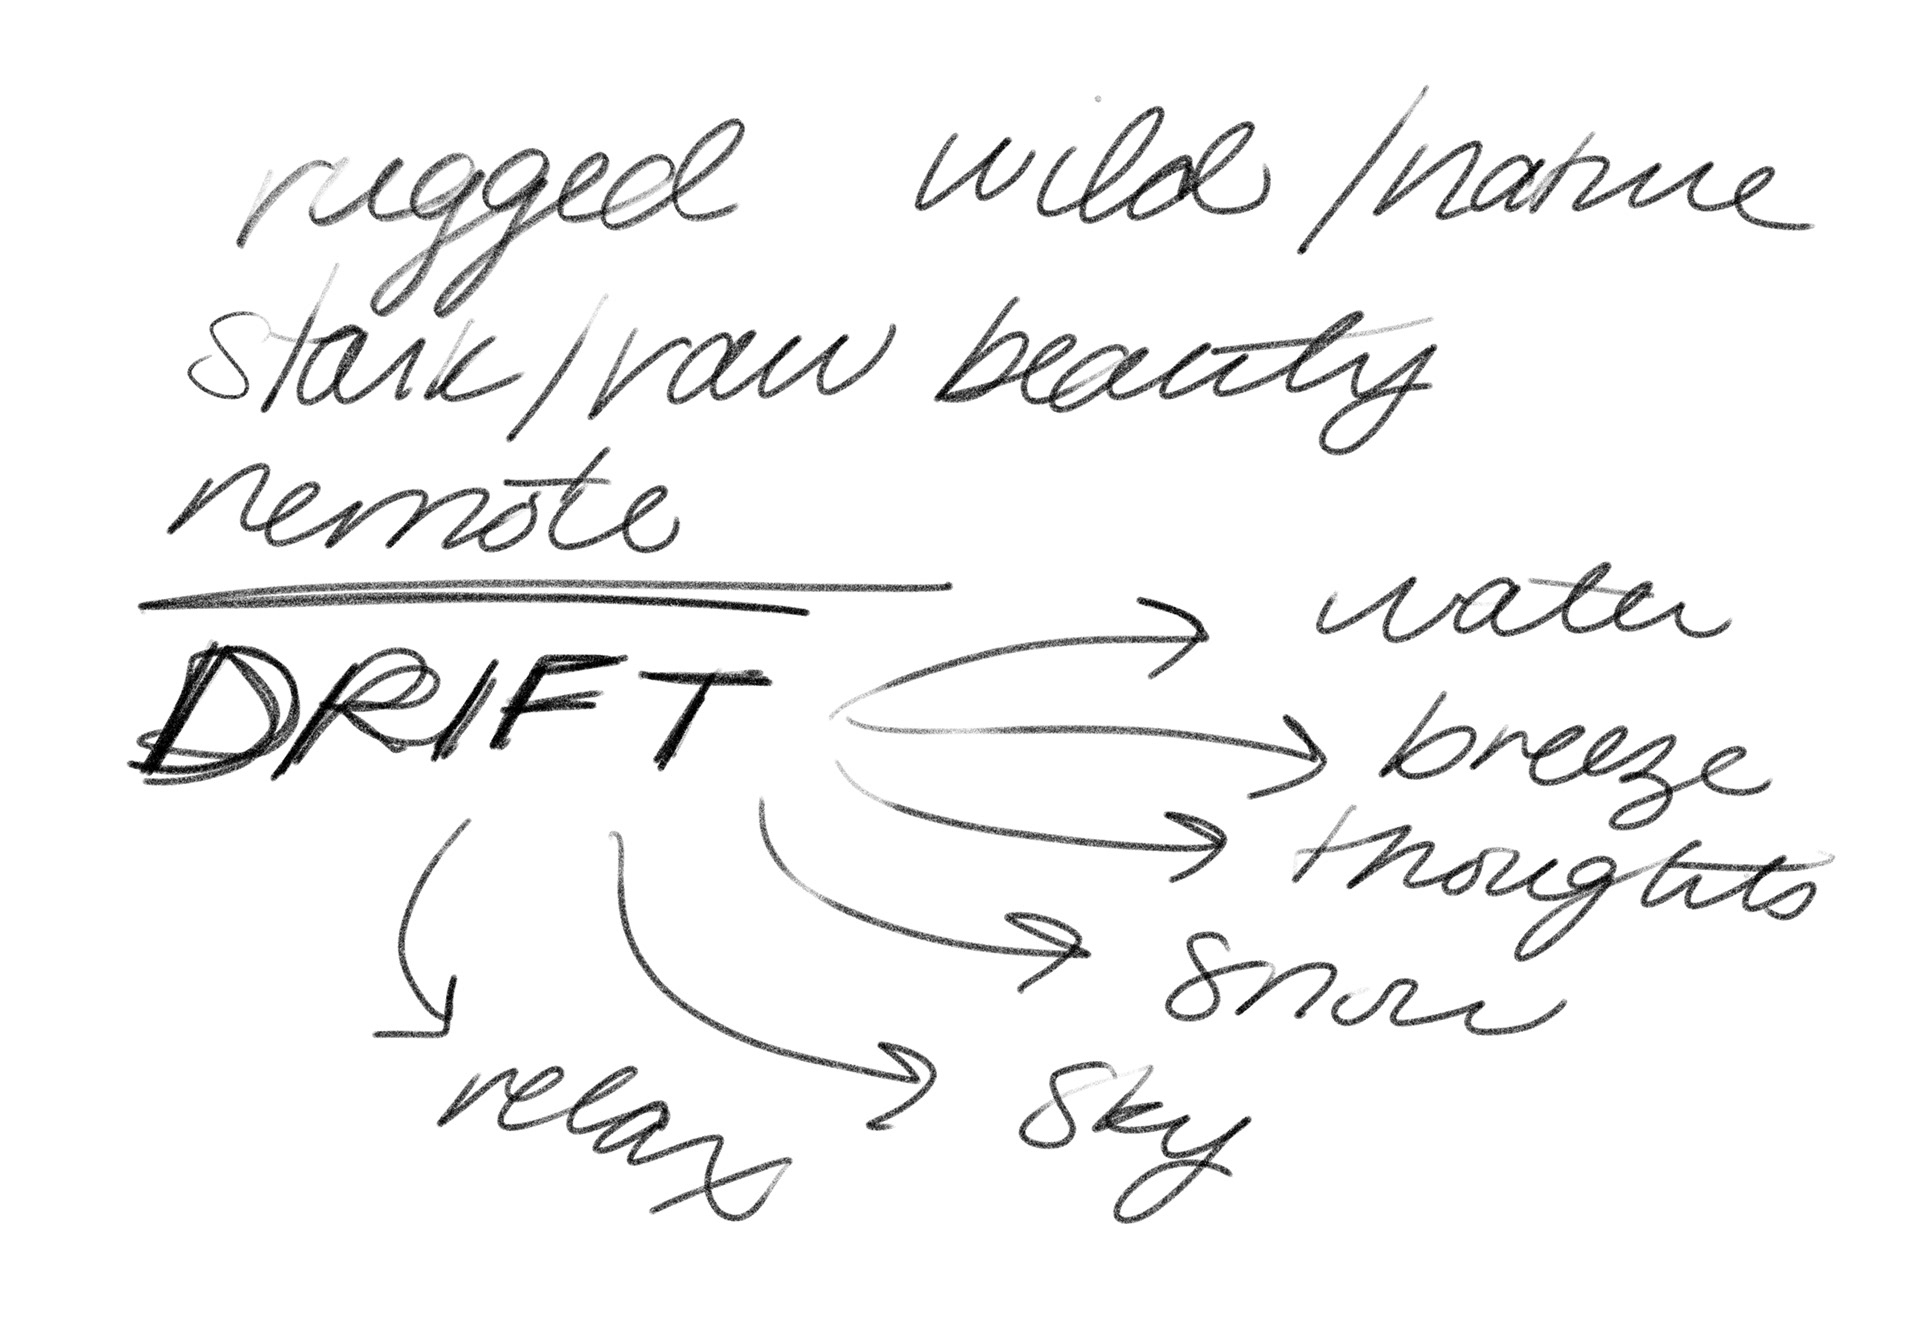 rugged wild / nature
stark / raw beauty
remote
DRIFT
water
breeze
thoughts
snow
sky
relax